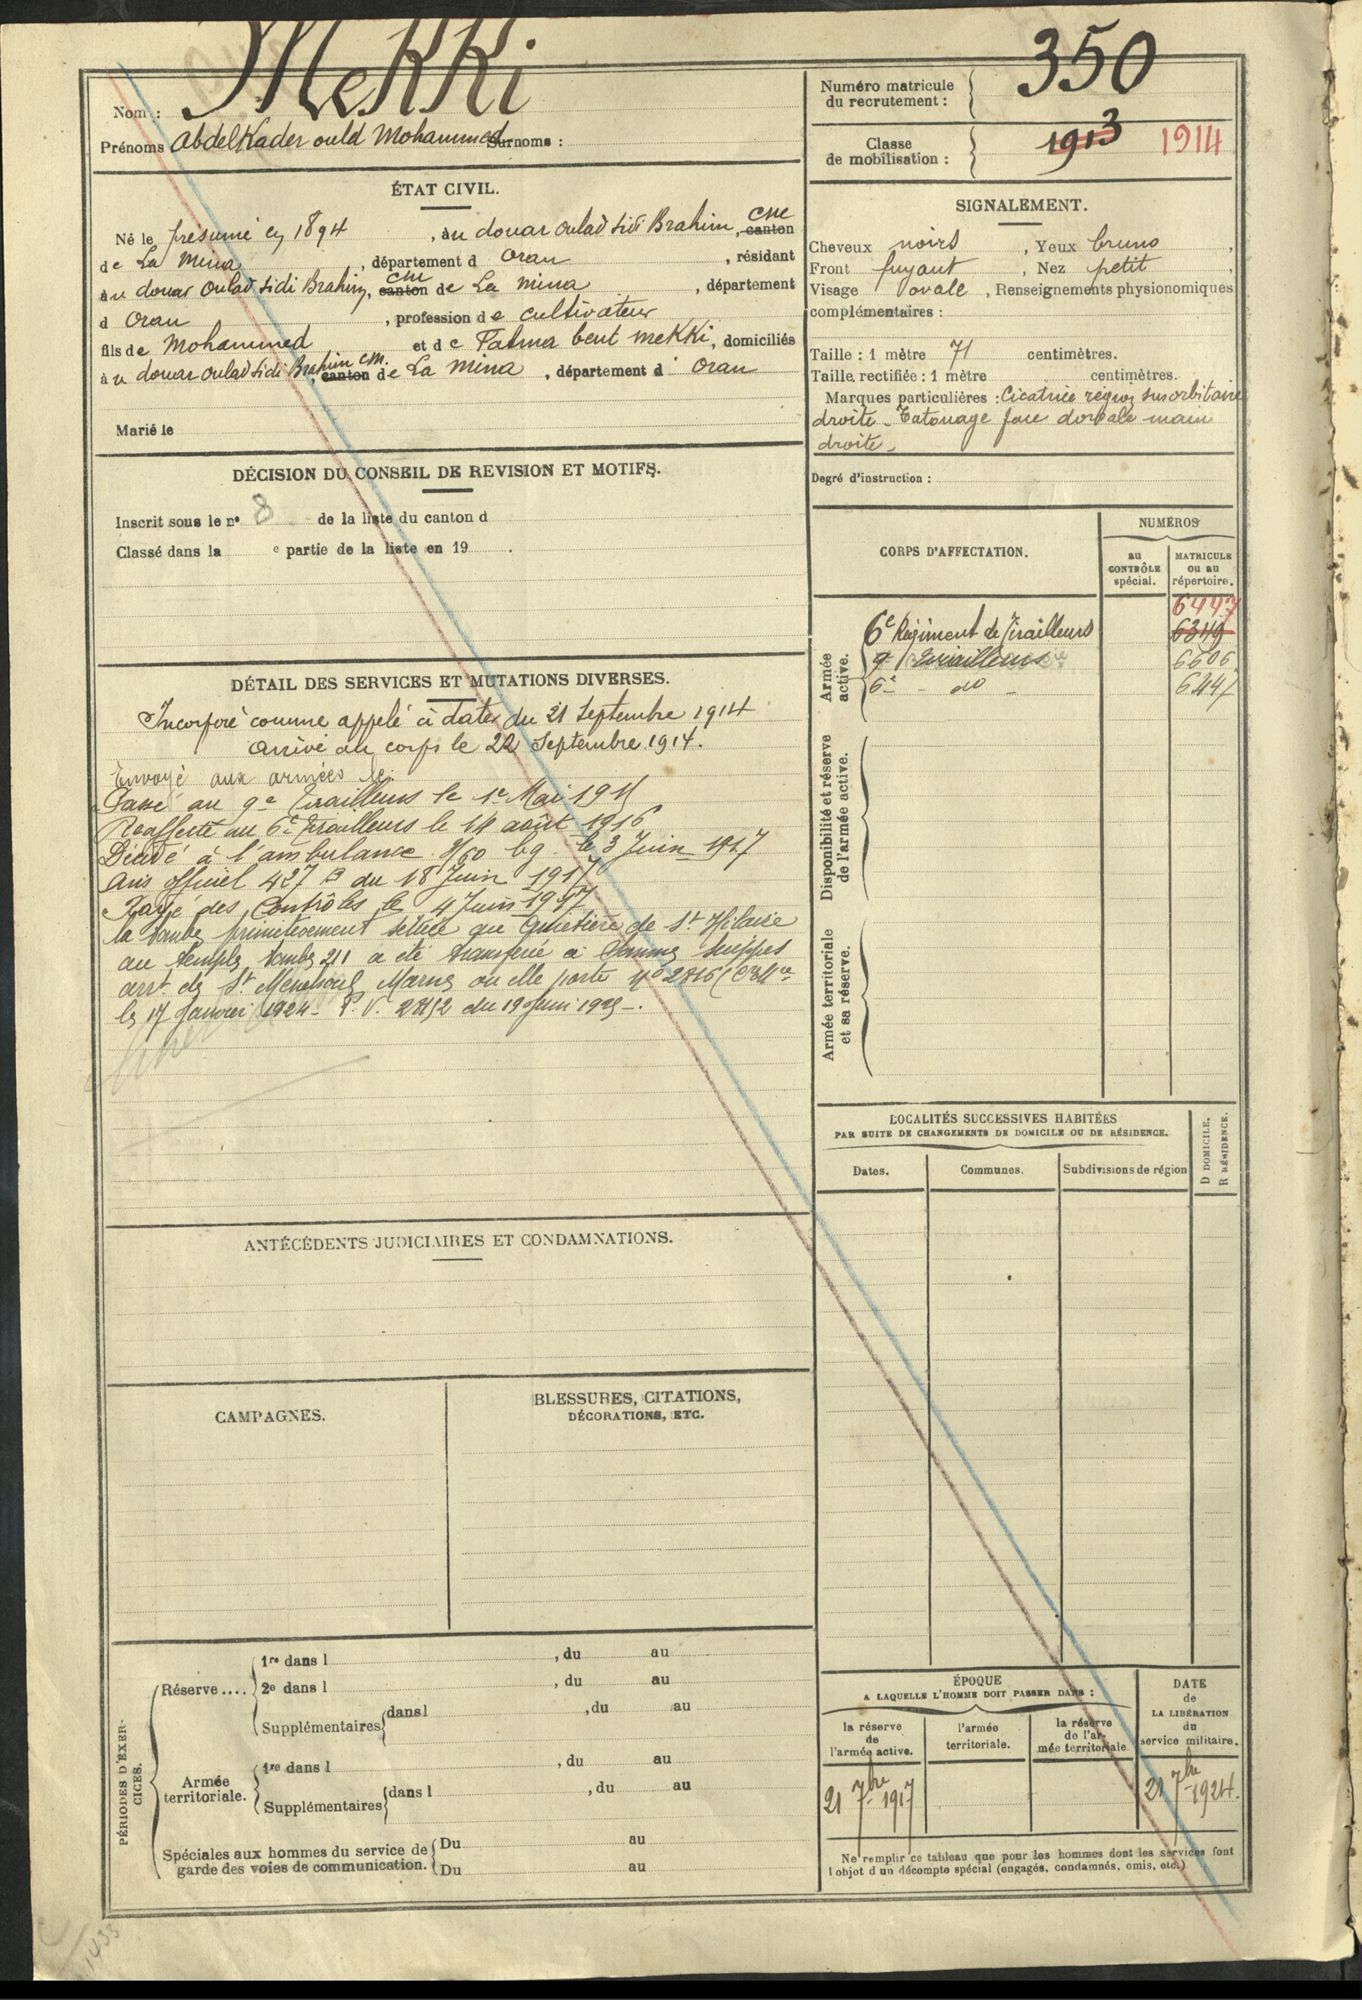 Nom : Mekki
Prénoms Abdelkader ould Mohammed Surnoms :
Numéro matricule
du recrutement :
350
Classe
de mobilisation :
1913 1914
ÉTAT CIVIL.
Né le présumé en 1894, au douar Oulad Sidi Brahim, cne canton
de La Mina, département d Oran, résidant
au douar Oulad Sidi Brahim, cne canton de La Mina, département
d Oran, profession de cultivateur
fils de Mohammed et de Fatma bent Mekki, domiciliés
au douar Oulad Sidi Brahim, c.m. canton de La Mina, département d' Oran
Marié le
SIGNALEMENT.
Cheveux noirs, Yeux bruns,
Front fuyant, Nez petit,
Visage ovale, Renseignements physionomiques
complémentaires :
Taille : 1 mètre 71 centimètres.
Taille rectifiée : 1 mètre centimètres.
Marques particulières : Cicatrice région susorbitaire
droite - Tatouage face dorsale main
droite -
Degré d'instruction :
DÉCISION DU CONSEIL DE REVISION ET MOTIFS.
Inscrit sous le n° 8 de la liste du canton d
Classé dans la e partie de la liste en 19 .
DÉTAIL DES SERVICES ET MUTATIONS DIVERSES.
Incorporé comme appelé à dater du 21 Septembre 1914
Arrivé au corps le 22 Septembre 1914.
Envoyé aux armées le
Passé au 9e Tirailleurs le 1er Mai 1915
Réaffecté au 6e Tirailleurs le 14 août 1916
Décédé à l'ambulance 3/60 le 3 Juin 1917
Avis officiel 427 B du 18 Juin 1917
Rayé des Contrôles le 4 Juin 1917
la tombe primitivement située au Cimetière de St Hilaire
au temple tombe 211 a été transférée à Somme Suippes
arrt de St Menehould Marne où elle porte n° 2816
le 17 Janvier 1924 - P.V. 2852 du 19 Juin 1925 -.
CORPS D'AFFECTATION.
NUMÉROS
au
CONTRÔLE
spécial.
MATRICULE
ou au
répertoire.
Armée
active.
6447
6e Régiment de Tirailleurs 6349
9e Tirailleurs 6606
6e - do - 6447
Disponibilité et réserve
de l'armée active.
Armée territoriale
et sa réserve.
LOCALITÉS SUCCESSIVES HABITÉES
PAR SUITE DE CHANGEMENTS DE DOMICILE OU DE RÉSIDENCE.
Dates.
Communes.
Subdivisions de région
D DOMICILE.
R RÉSIDENCE.
ANTÉCÉDENTS JUDICIAIRES ET CONDAMNATIONS.
CAMPAGNES.
BLESSURES, CITATIONS,
DÉCORATIONS, ETC.
PÉRIODES D'EXER-
CICES.
Réserve ....
1re dans l , du au
2e dans l , du au
Supplémentaires dans l , du au
Armée
territoriale.
1re dans l , du au
Supplémentaires dans l , du au
Spéciales aux hommes du service de
garde des voies de communication.
Du au
Du au
ÉPOQUE
A LAQUELLE L'HOMME DOIT PASSER DANS :
la réserve
de
l'armée active.
l'armée
territoriale.
la réserve
de l'ar-
mée territoriale.
DATE
de
LA LIBÉRATION
du
service militaire.
21 7bre 1917
21 7bre 1924.
Ne remplir ce tableau que pour les hommes dont les services font
l'objet d'un décompte spécial (engagés, condamnés, omis, etc.)
1433